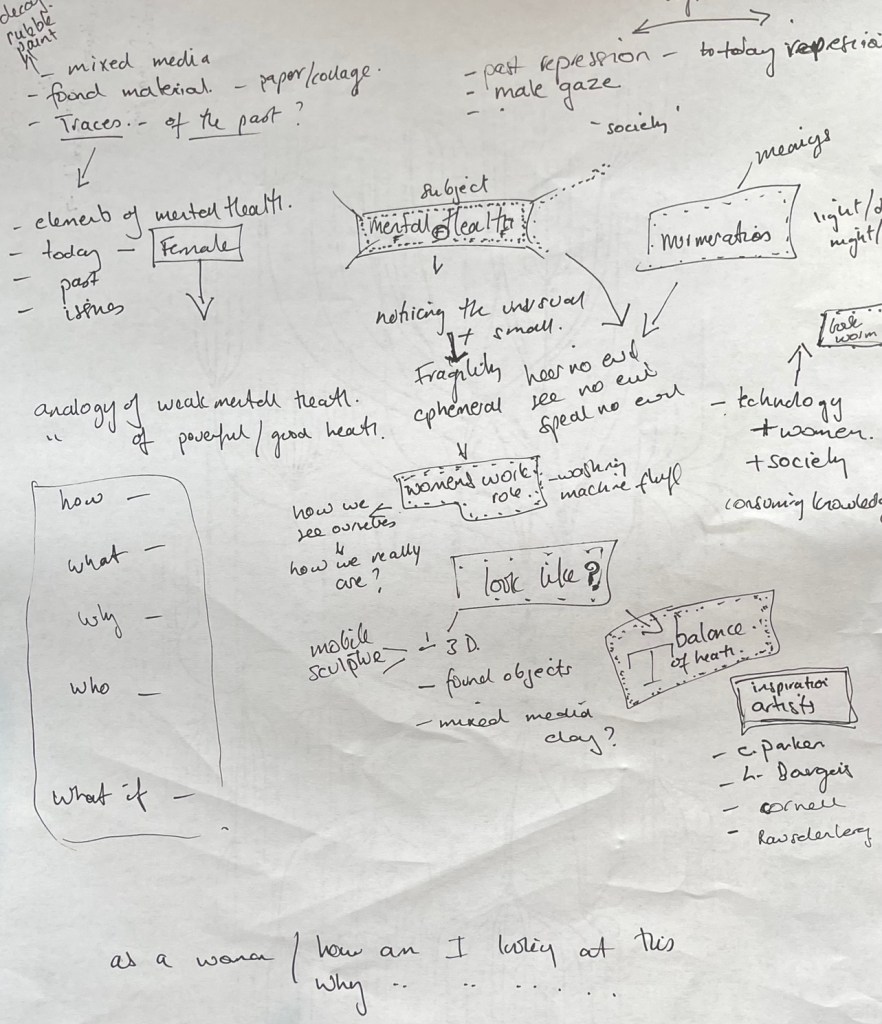 decay.
rubble
paint
- mixed media
- found material. - paper/collage.
- Traces. - of the past?
- past repression - to today
- male gaze
-
- society'
meanings
subject
Mental Health
murmerations
light/
night/
- elements of mental Health.
- today - Female
- past
- issues
noticing the unusual
+ small.
Fragility
ephemeral
hear no evil
see no evil
speak no evil
book
worm
- technology
+ women.
+ society
consuming knowled
analogy of weak mental health.
" of powerful/good health.
womens work/
role.
- washing
machine fluff
how we
see ourselves
how we really
are?
how -
what -
why -
who -
what if -
look like?
mobile
sculpture
- 3D.
- found objects
- mixed media
clay?
balance
of heath.
inspiration
artists
- C. Parker
- L. Bourgeis
- cornell
- Rauschenberg
as a woman / how am I looking at this
why " " . . . . .